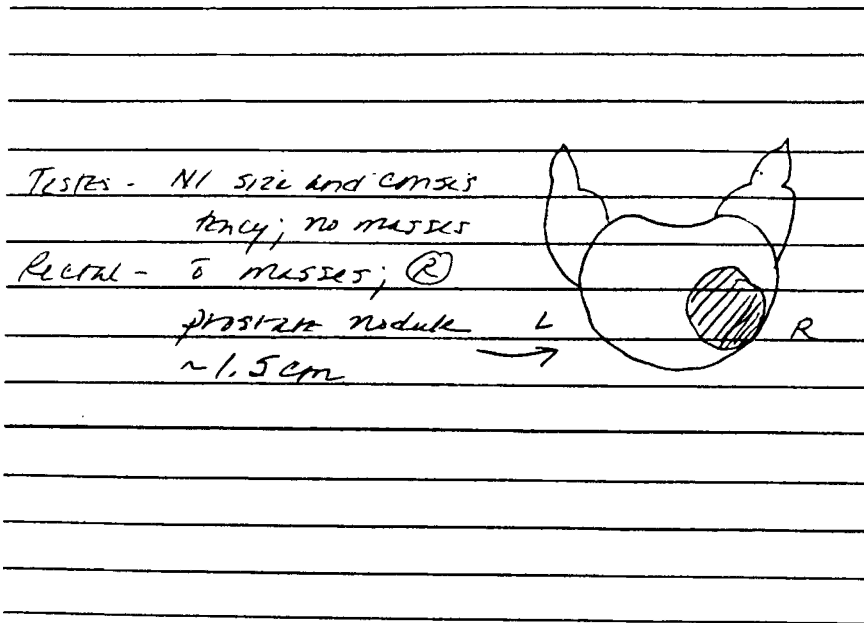 Testes - Nl size and consis
tency; no masses
Rectal - ō masses; Ⓡ
prostate nodule L R
~1.5cm